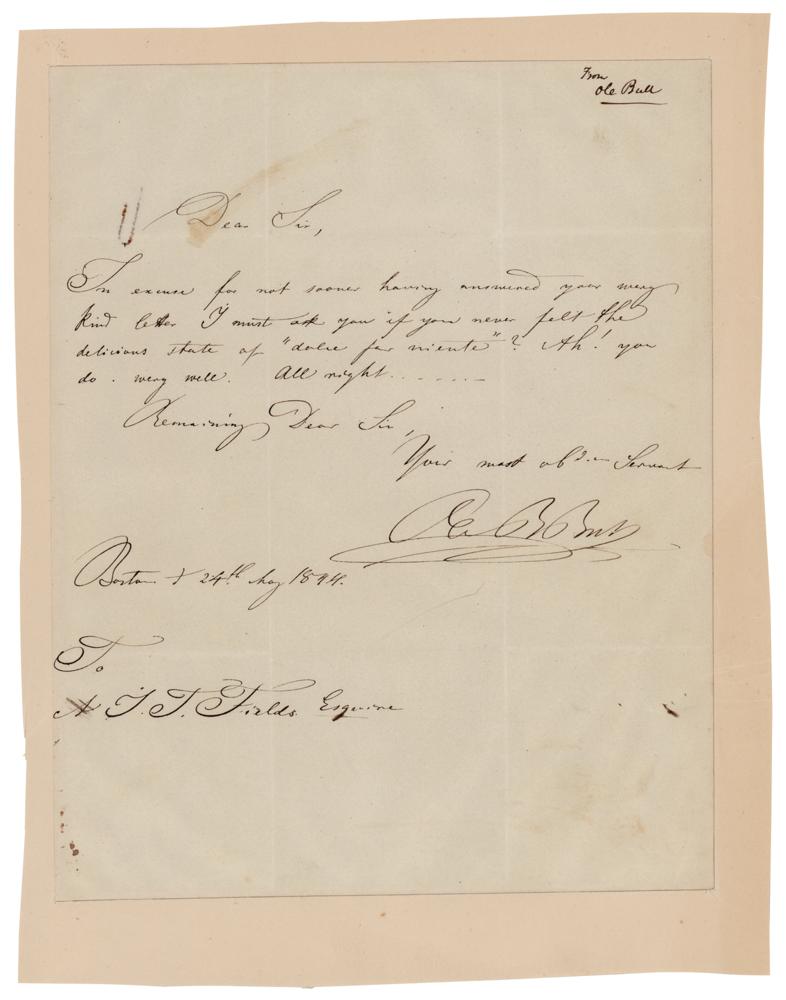 From
Ole Bull
Dear Sir,
In excuse for not sooner having answered your wery
kind letter I must ask you if you never felt the
delicious state of "dolce far niente"? Ah! you
do. wery well. All right.......
Remaining Dear Sir,
Your most obd Servant
Ole B Bull
Boston 24th May 1844.
To
J. T. Fields. Esquire